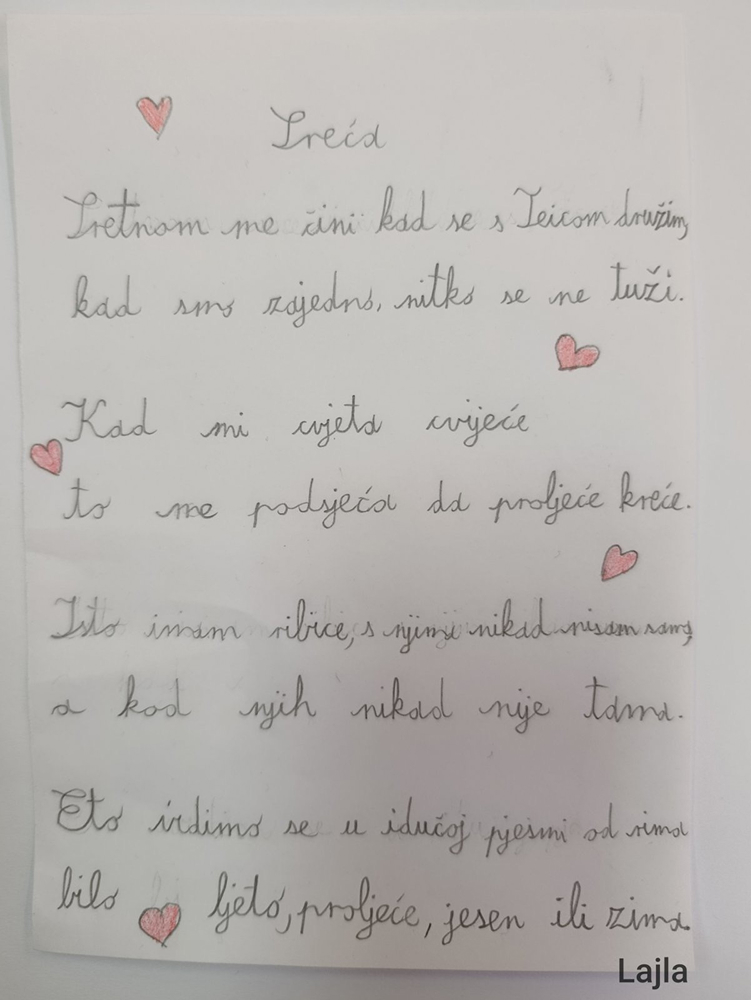 Sreća
Sretnom me čini kad se s Teicom družim,
kad smo zajedno, nitko se ne tuži.
Kad mi cvjeta cvijeće
to me podsjeća da proljeće kreće.
Isto imam ribice, s njima nikad nisam sama,
a kod njih nikad nije tama.
Eto vidimo se u idućoj pjesmi od rima
bilo ljeto, proljeće, jesen ili zima.
Lajla